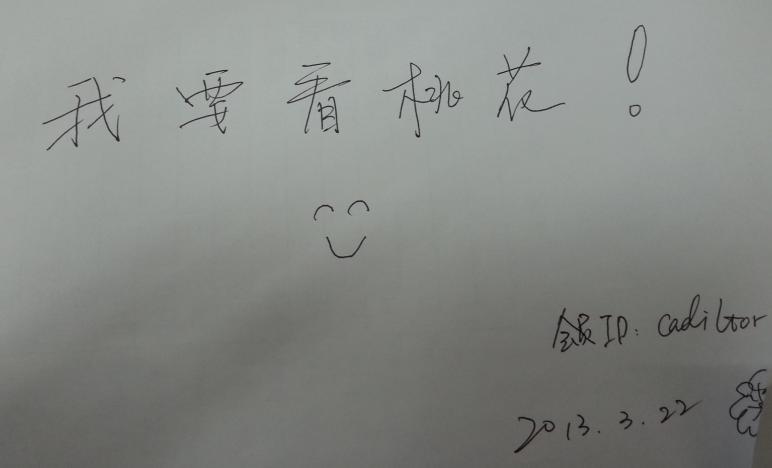 我要看桃花!
会员ID: cadibtor
2013.3.22